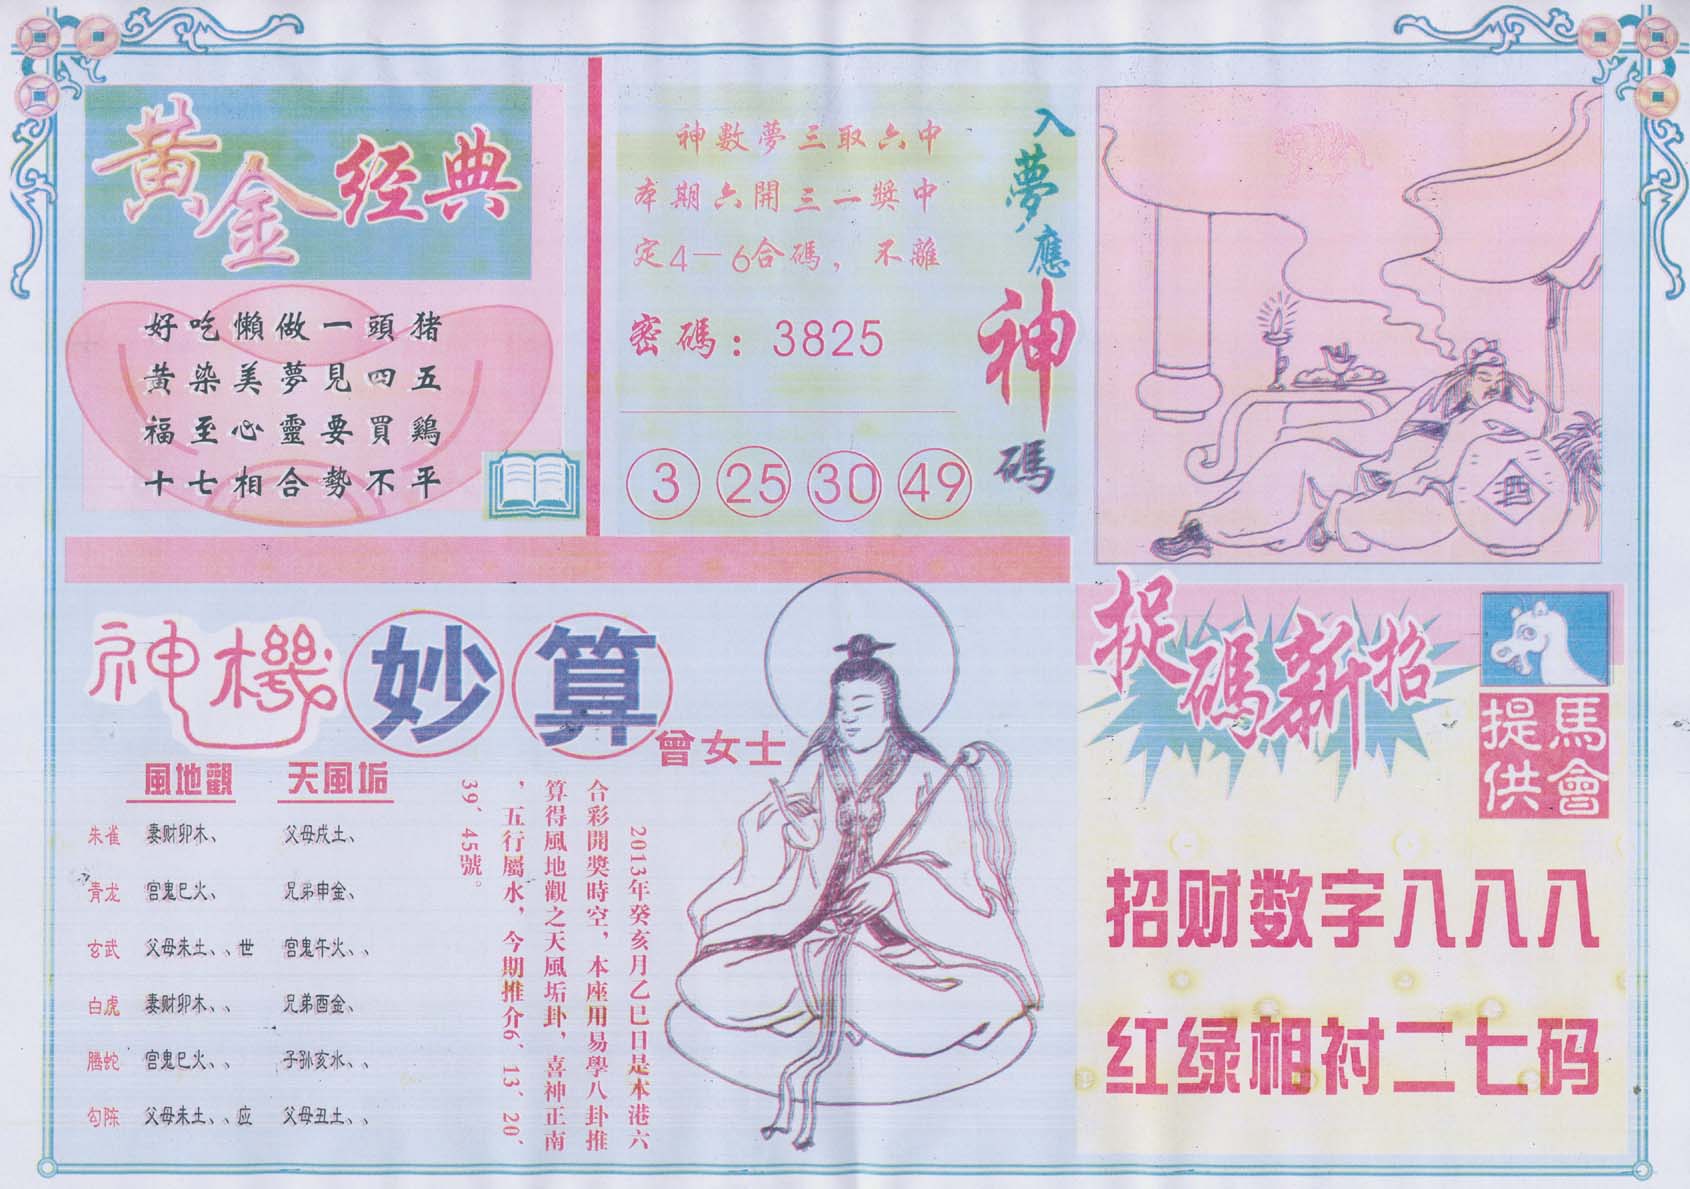 黄金经典
好吃懶做一頭猪
黃染美夢見四五
福至心靈要買鷄
十七相合勢不平
神數夢三取六中
本期六開三一獎中
定4—6合碼，不離
密碼：3825
3 25 30 49
入夢應神碼
酒
神機妙算
曾女士
風地觀 天風垢
朱雀 妻财卯木、 父母戍土、
青龙 官鬼巳火、 兄弟申金、
玄武 父母未土、、世 官鬼午火、、
白虎 妻财卯木、、 兄弟酉金、
腾蛇 官鬼巳火、、 子孙亥水、、
句陈 父母未土、、应 父母丑土、、
2013年癸亥月乙巳日是本港六
合彩開獎時空，本座用易學八卦推
算得風地觀之天風垢卦，喜神正南
，五行屬水，今期推介6、13、20、
39、45號。
捉碼新招
馬會提供
招财数字八八八
红绿相衬二七码